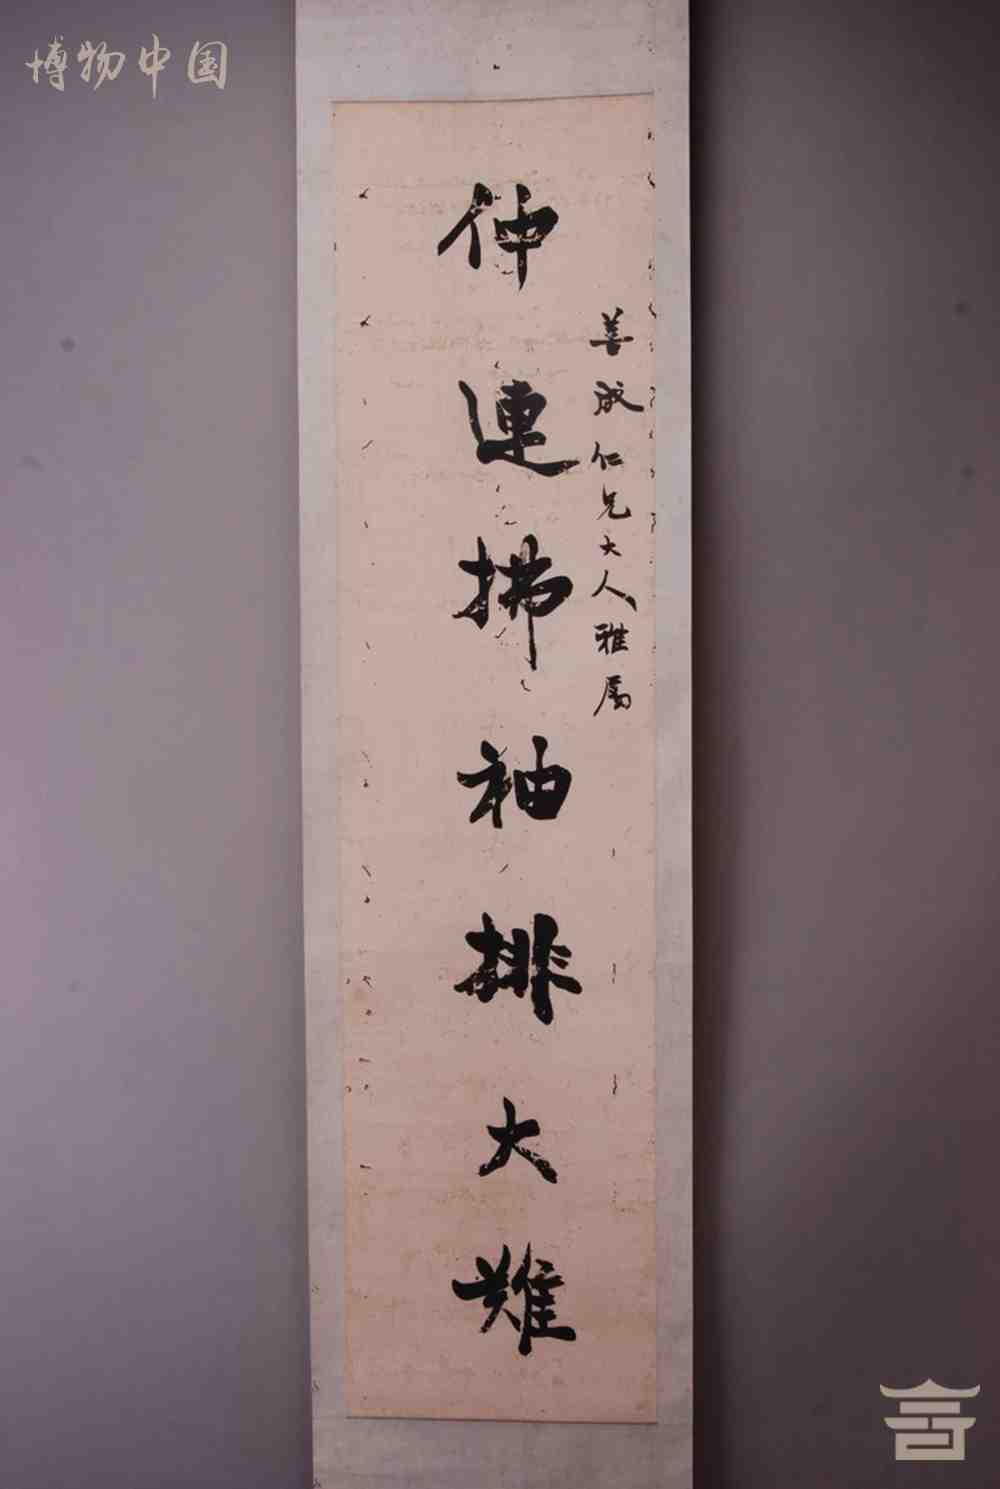 博物中国
善成仁兄大人雅属
仲連拂袖排大難